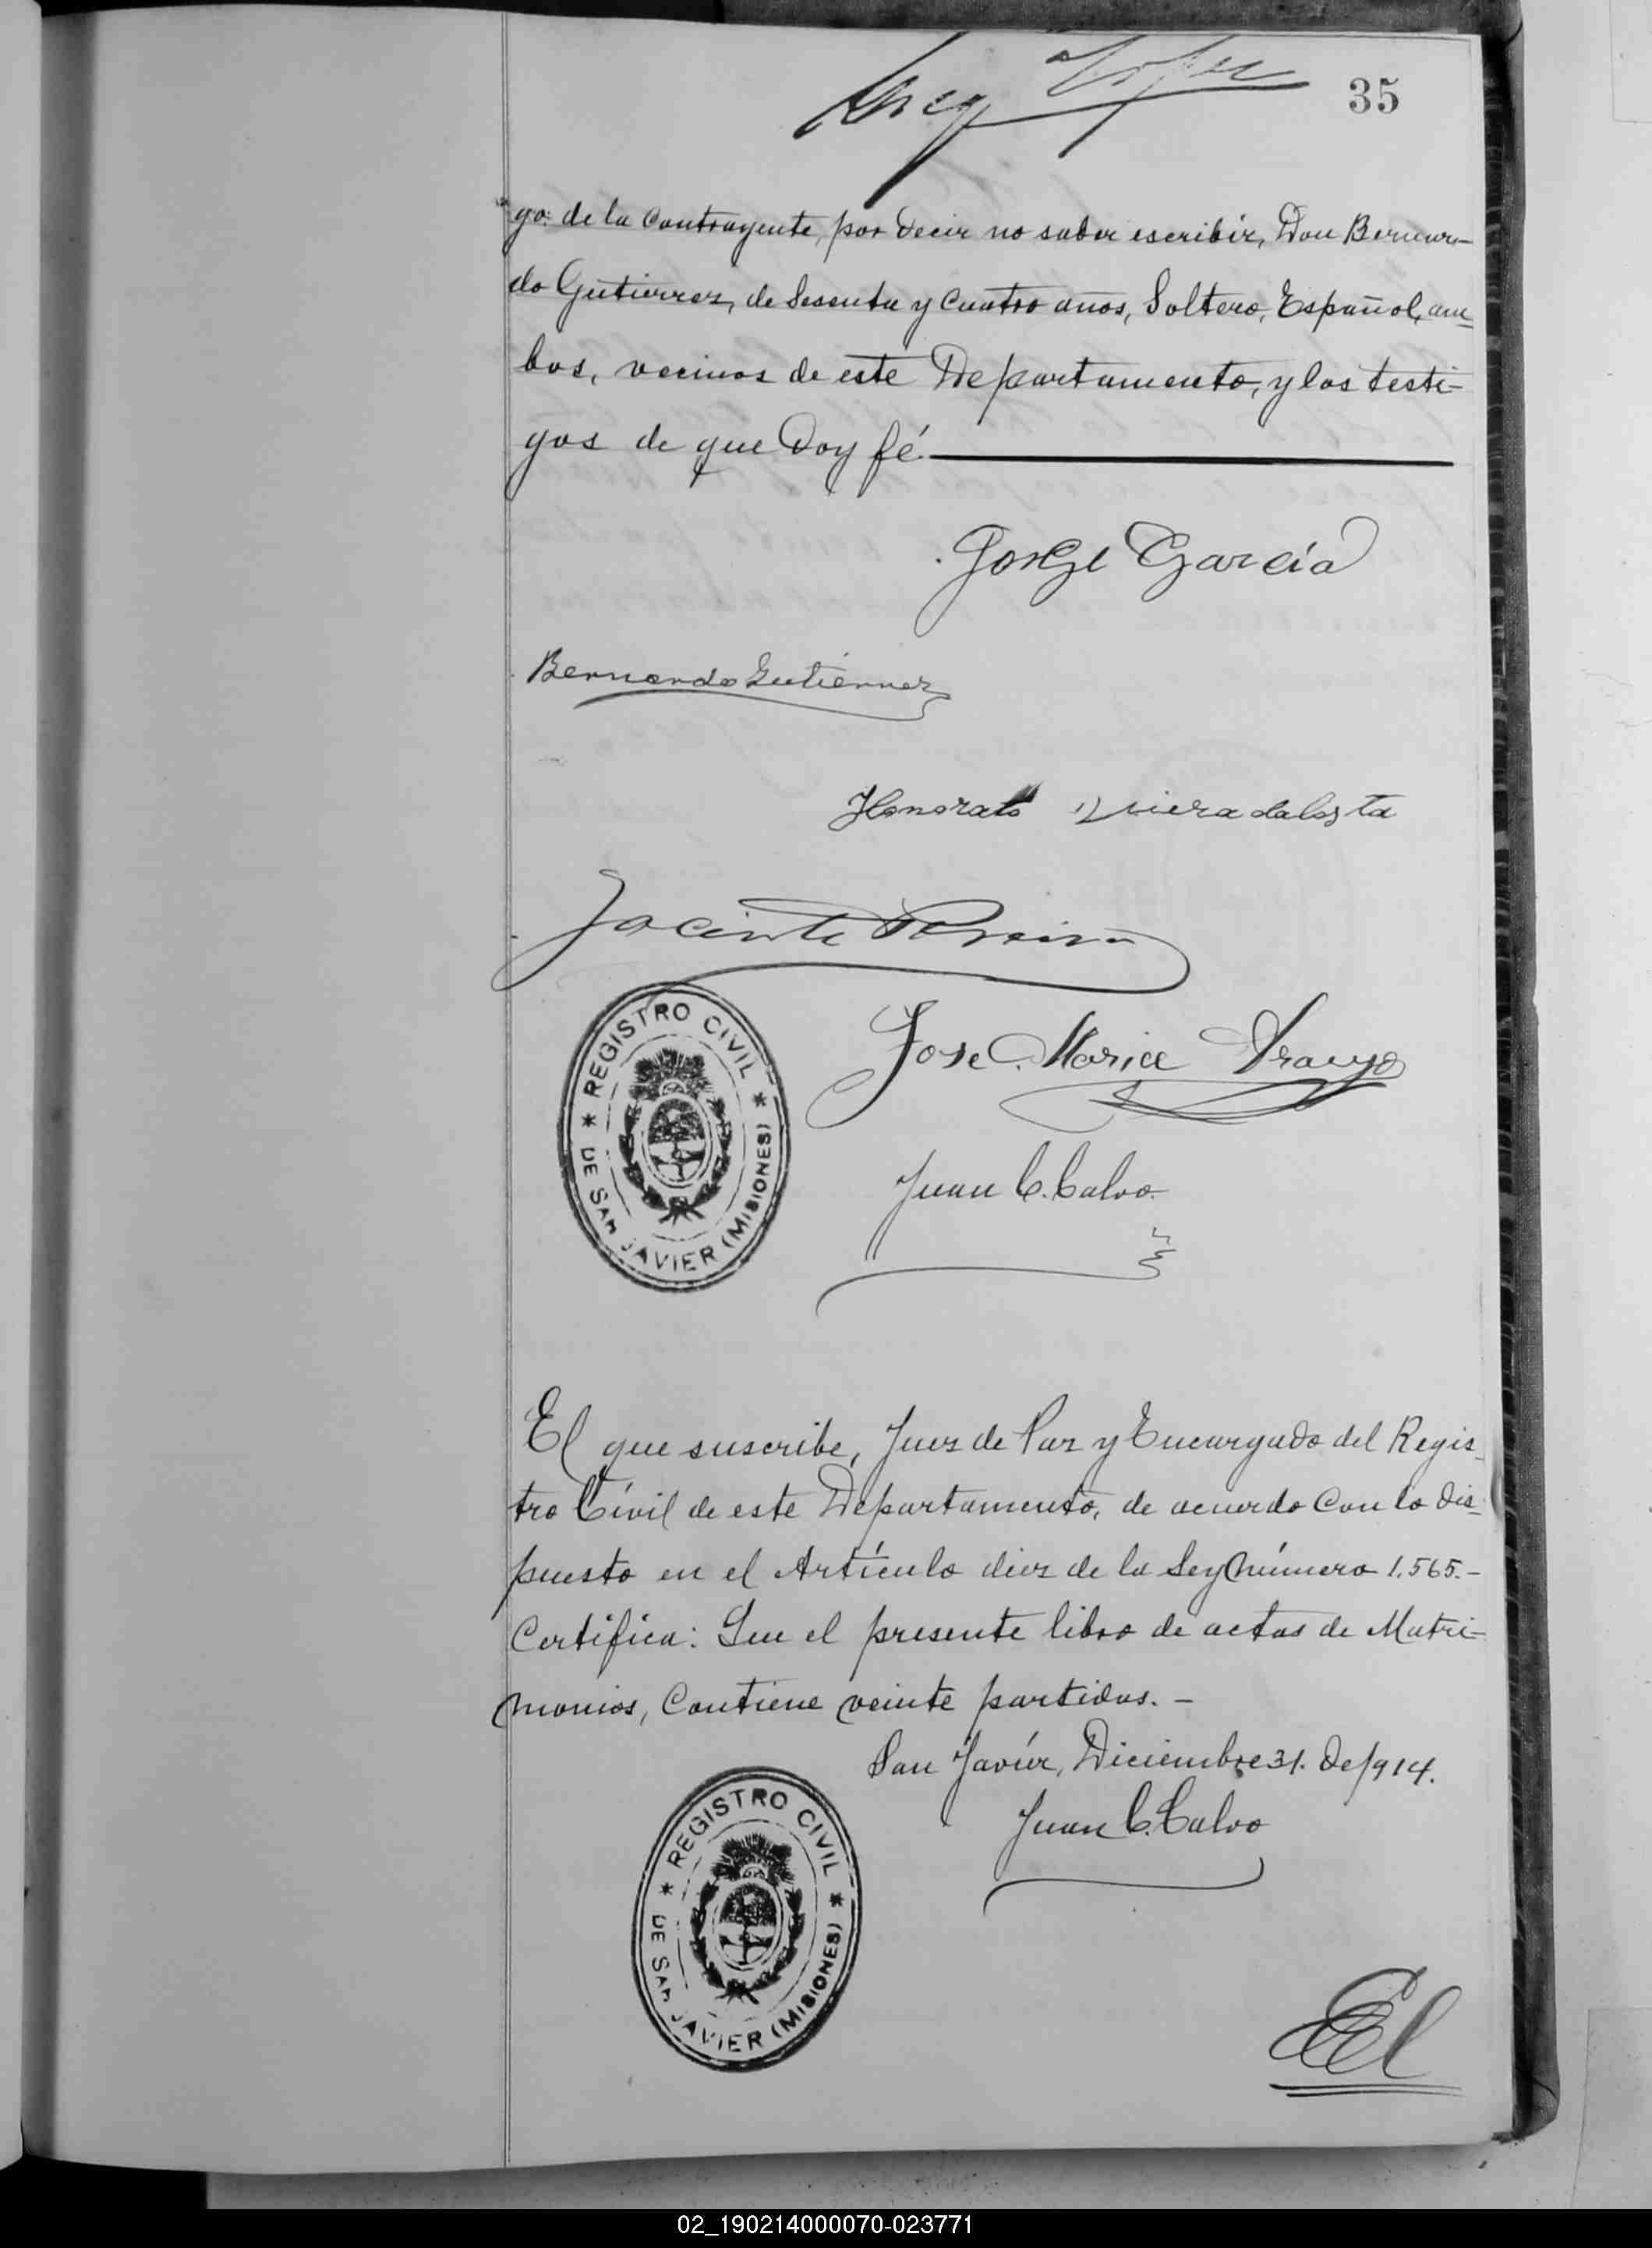 35
go de la Contrayente, por decir no saber escribir, Don Bernar-
do Gutierrez, de Sesenta y Cuatro años, Soltero, Español, am-
bos, vecinos de este Departamento, y los testi-
gos de que Doy fé.
Jorge García
Bernardo Gutierrez
Honorato Viera da Costa
Jacinto Pereira
Jose Maria Araujo
REGISTRO CIVIL
DE SAN JAVIER (MISIONES)
Juan C. Calvo.
El que suscribe, Juez de Paz y Encargado del Regis-
tro Civil de este Departamento, de acuerdo con lo dis-
puesto en el Artículo diez de la Ley número 1.565.-
Certifica: Que el presente libro de actas de Matri-
monios, Contiene veinte partidas. -
San Javier, Diciembre 31. de 1914.
Juan C. Calvo
REGISTRO CIVIL
DE SAN JAVIER (MISIONES)
02_190214000070-023771